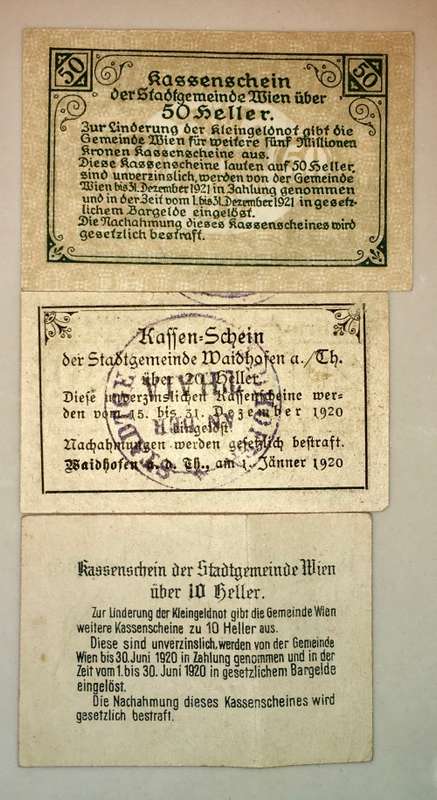 50
50
Kassenschein
der Stadtgemeinde Wien über
50 Heller.
Zur Linderung der Kleingeldnot gibt die
Gemeinde Wien für weitere fünf Millionen
Kronen Kassenscheine aus.
Diese Kassenscheine lauten auf 50 Heller,
sind unverzinslich, werden von der Gemeinde
Wien bis 31. Dezember 1921 in Zahlung genommen
und in der Zeit vom 1. bis 31. Dezember 1921 in gesetz-
lichem Bargelde eingelöst.
Die Nachahmung dieses Kassenscheines wird
gesetzlich bestraft.
Kassen-Schein
der Stadtgemeinde Waidhofen a./Th.
über 20 Heller.
Diese unverzinslichen Kassenscheine wer-
den vom 15. bis 31. Dezember 1920
eingelöst.
Nachahmungen werden gesetzlich bestraft.
Waidhofen a. d. Th., am 1. Jänner 1920
AN DER
Kassenschein der Stadtgemeinde Wien
über 10 Heller.
Zur Linderung der Kleingeldnot gibt die Gemeinde Wien
weitere Kassenscheine zu 10 Heller aus.
Diese sind unverzinslich, werden von der Gemeinde
Wien bis 30. Juni 1920 in Zahlung genommen und in der
Zeit vom 1. bis 30. Juni 1920 in gesetzlichem Bargelde
eingelöst.
Die Nachahmung dieses Kassenscheines wird
gesetzlich bestraft.